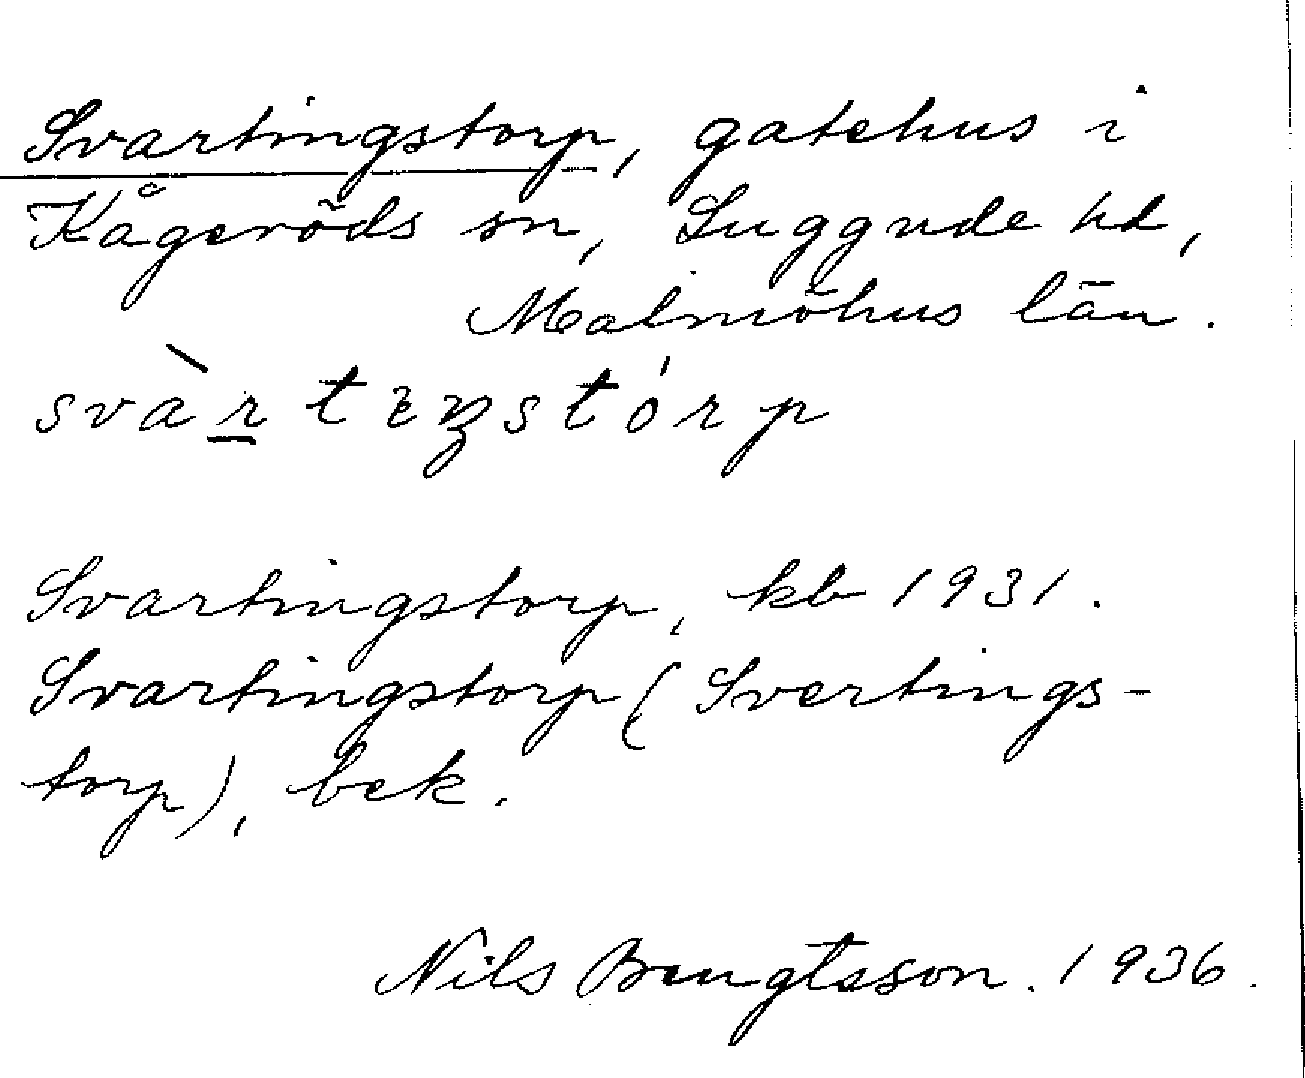 Svartingstorp, gatehus i
Kågeröds sn, Luggude hd,
Malmöhus län.
svàrteŋstórp
Svartingstorp, kb 1931.
Svartingstorp (Svertings-
torp), bek.
Nils Bengtsson. 1936.